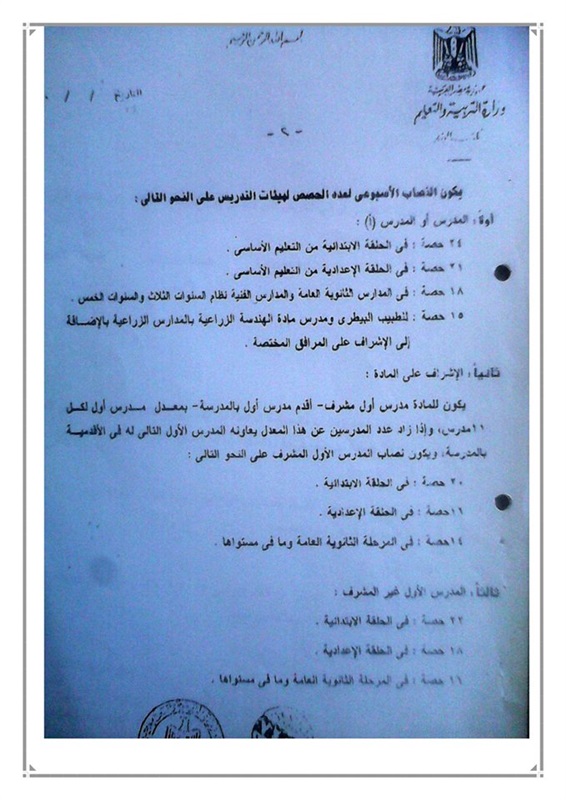 بسم الله الرحمن الرحيم
جمهورية مصر العربية
وزارة التربية والتعليم
التاريخ / /
- ٢ -
يكون النصاب الأسبوعى لعدد الحصص لهيئات التدريس على النحو التالى :
أولاً: المدرس أو المدرس (أ) :
٢٤ حصة : فى الحلقة الابتدائية من التعليم الأساسى .
٢١ حصة : فى الحلقة الإعدادية من التعليم الأساسى .
١٨ حصة : فى المدارس الثانوية العامة والمدارس الفنية نظام السنوات الثلاث والسنوات الخمس .
١٥ حصة : للطبيب البيطرى ومدرس مادة الهندسة الزراعية بالمدارس الزراعية بالإضافة
إلى الإشراف على المرافق المختصة .
ثانياً: الإشراف على المادة :
يكون للمادة مدرس أول مشرف- أقدم مدرس أول بالمدرسة- بمعدل مدرس أول لكل
١١مدرس، وإذا زاد عدد المدرسين عن هذا المعدل يعاونه المدرس الأول التالى له فى الأقدمية
بالمدرسة، ويكون نصاب المدرس الأول المشرف على النحو التالى :
٢٠ حصة : فى الحلقة الابتدائية .
حصة : فى الحلقة الإعدادية .
١٤حصة : فى المرحلة الثانوية العامة وما فى مستواها .
ثالثاً: المدرس الأول غير المشرف :
٢٢ حصة : فى الحلقة الابتدائية .
١٨ حصة : فى الحلقة الإعدادية .
حصة : فى المرحلة الثانوية العامة وما فى مستواها .